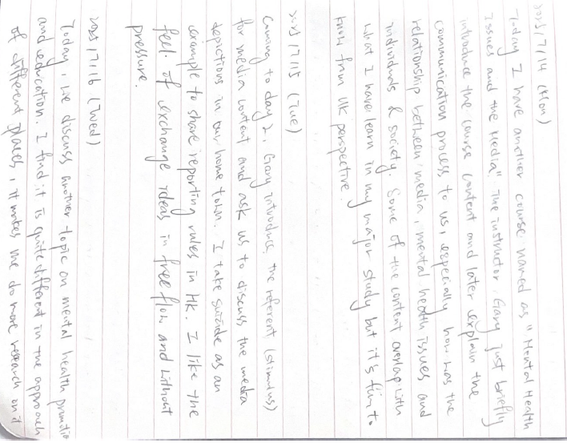 2025/7/14 (Mon)
Today I have another course named as "Mental Health
Issues and the Media". The instructor, Gary just briefly
introduce the course content and later explain the
communication process to us, especially how was the
relationship between media, mental health issues and
individuals & society. Some of the content overlap with
what I have learn in my major study but it's fun to
know from UK perspective
2025/7/15 (Tue)
Coming to day 2, Gary introduce the referent (stimulus)
for media content and ask us to discuss the media
depictions in our home town. I take suicide as an
example to share reporting rules in HK. I like the
feel of exchange ideas in free flow and without
pressure.
2025/7/16 (Wed)
Today, we discuss another topic on mental health
and education. I find it is quite different in the approach
of different places, it makes me do more research on it